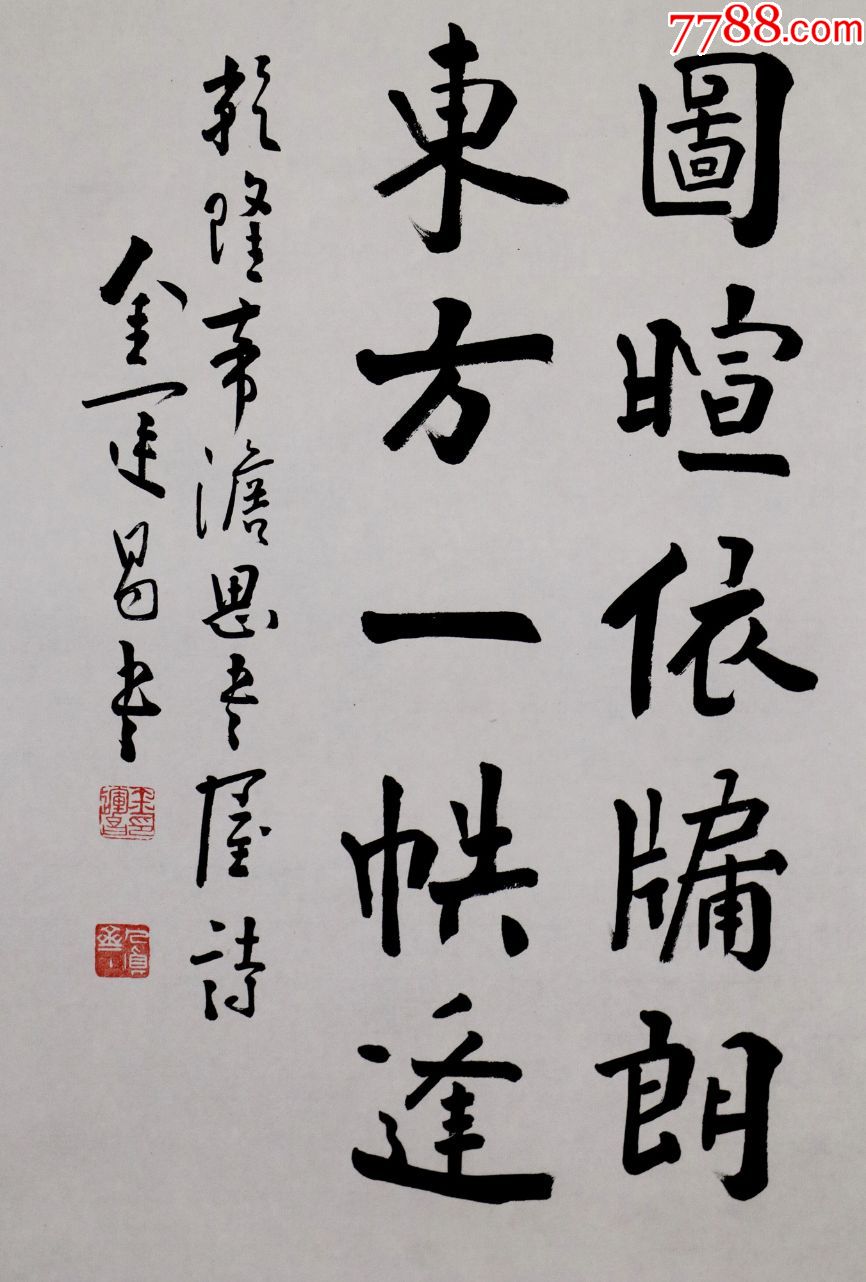 7788.com
圖暄依牖朗
東方一帙逢
乾隆帝澹思書屋詩
金運昌書